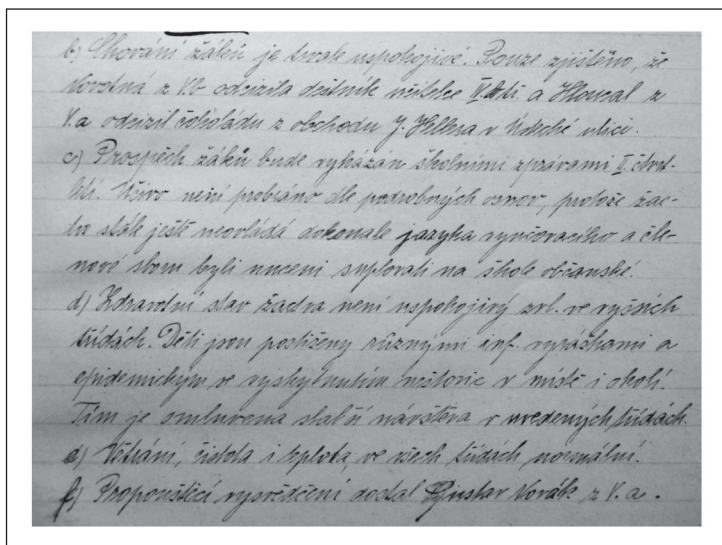 b) Chování žáků je svak uspokojivé. Pouze zjištěno, že
Novotná z V.b odcizila deštník učitelce IV. tř. a Hloucal z
V.a odcizil čokoládu z obchodu J. Hellera v úzeché ulici.
c) Prospěch žáků bude vykázán školními zprávami II. čtvrt-
letí. Učivo není probíráno dle podrobných osnov, protože žac-
tvo stále ještě neovládá dokonale jazyka vyučovacího a čle-
nové sboru byli nuceni suplovati na škole občanské.
d) Zdravotní stav žactva není uspokojivý zvl. ve vyšších
třídách. Děti jsou postiženy různými inf. vyrážkami a
epidemickým se vyskytnutím neštovic v místě i okolí.
Tím je omluvena slabší návštěva v uvedených třídách.
e) Větrání, čistota i teplota, ve všech třídách normální.
f) Propouštěcí vysvědčení dostal Gustav Novák z V.a.